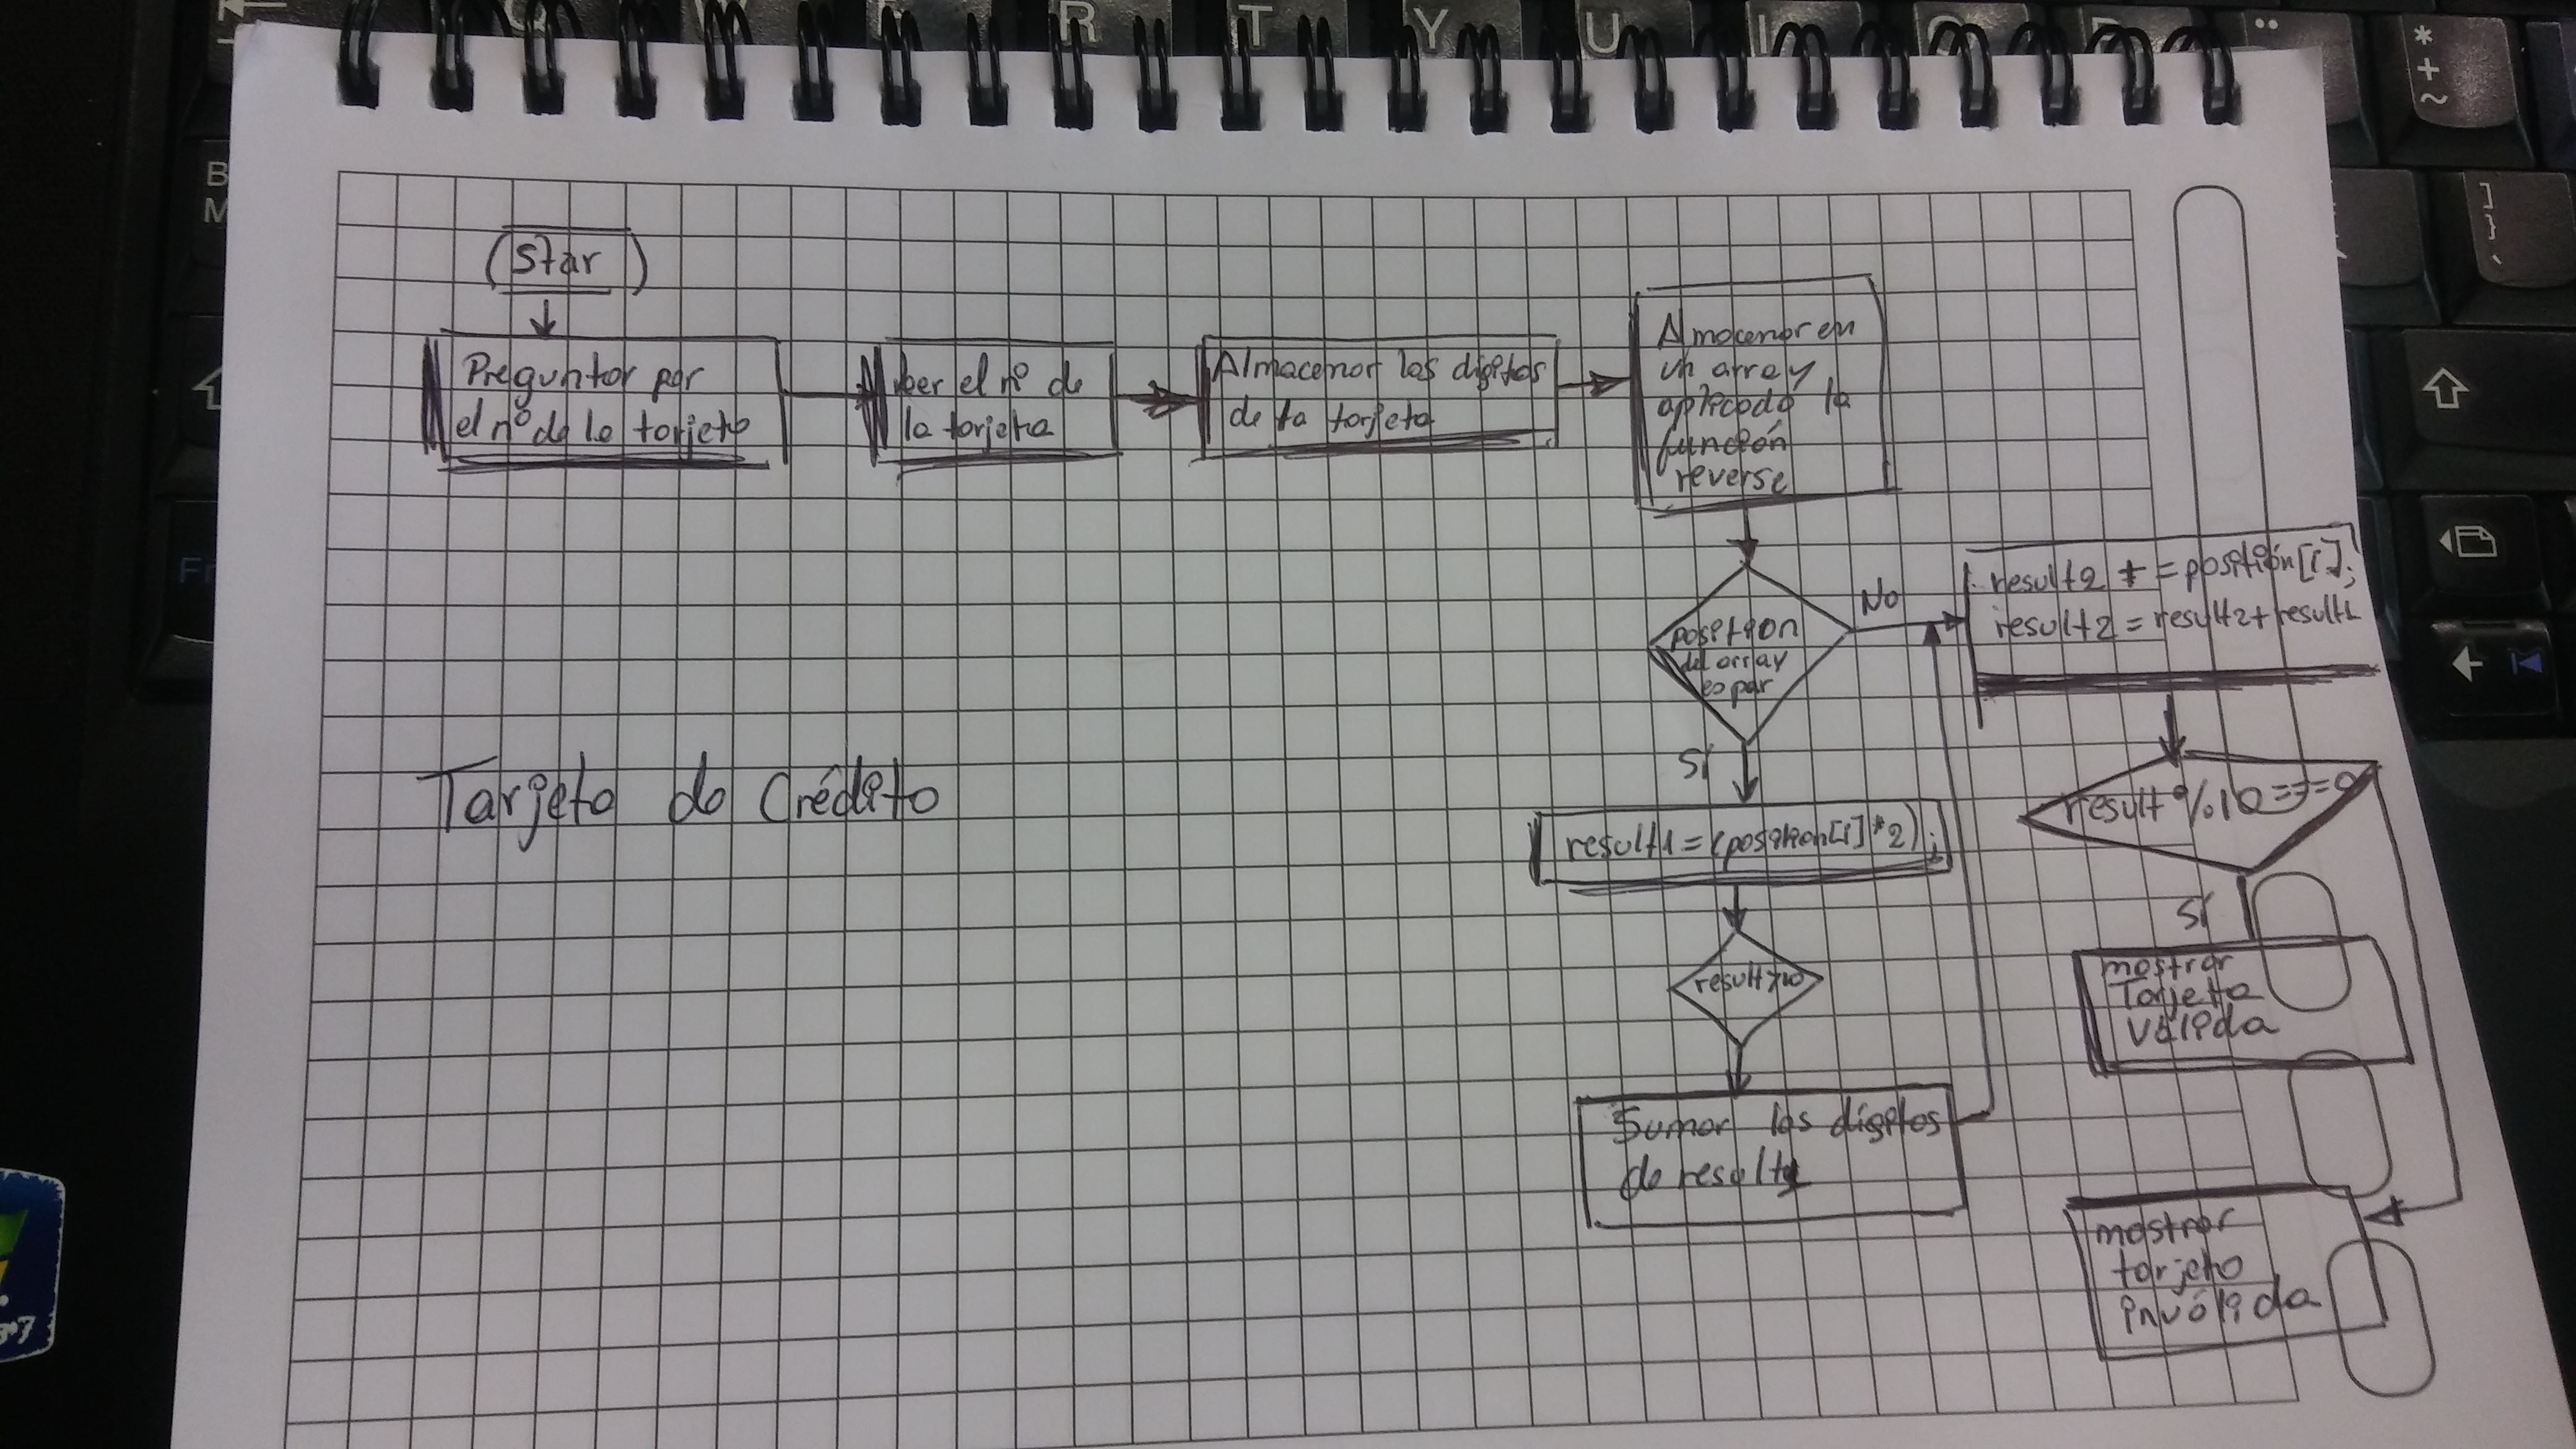 (Star)
Preguntar por
el nº de la tarjeta
ber el nº de
la tarjeta
Almacenar los digitos
de la tarjeta
Almacenar en
un array
aplicado la
función
reverse
position
del array
es par
No
Si
result1 = (position[i]*2);
result>10
Sumar los digitos
de result1
result2 += position[i];
result2 = result2+result1
result%10==0
Si
mostrar
Tarjeta
Válida
mostrar
tarjeta
inválida
Tarjeta de Crédito
Q
W
R
T
Y
U
I
O
P
*
+
~
]